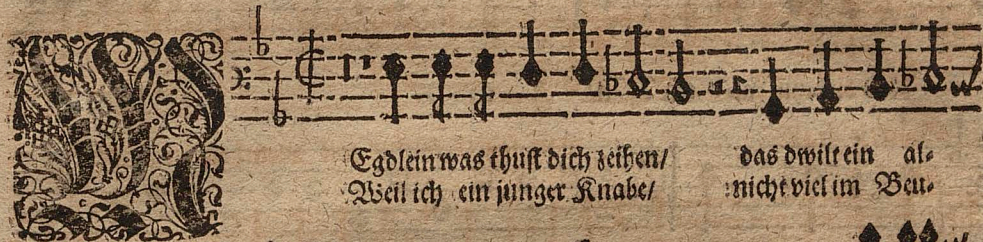 MEgdlein was thust dich zeihen/ das dwilt ein al-
Weil ich ein junger Knabe/ nicht viel im Beu-